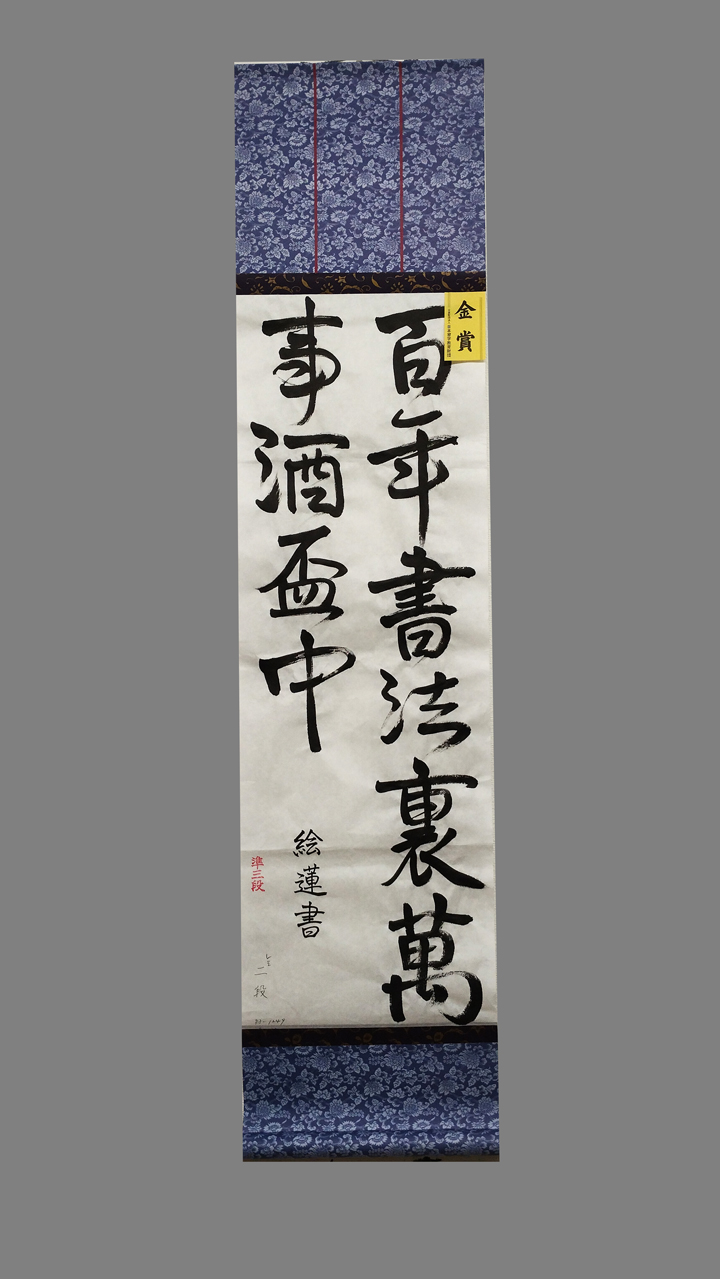 金賞
百年書法裏萬
事酒盃中
絵蓮書
準三段
二段